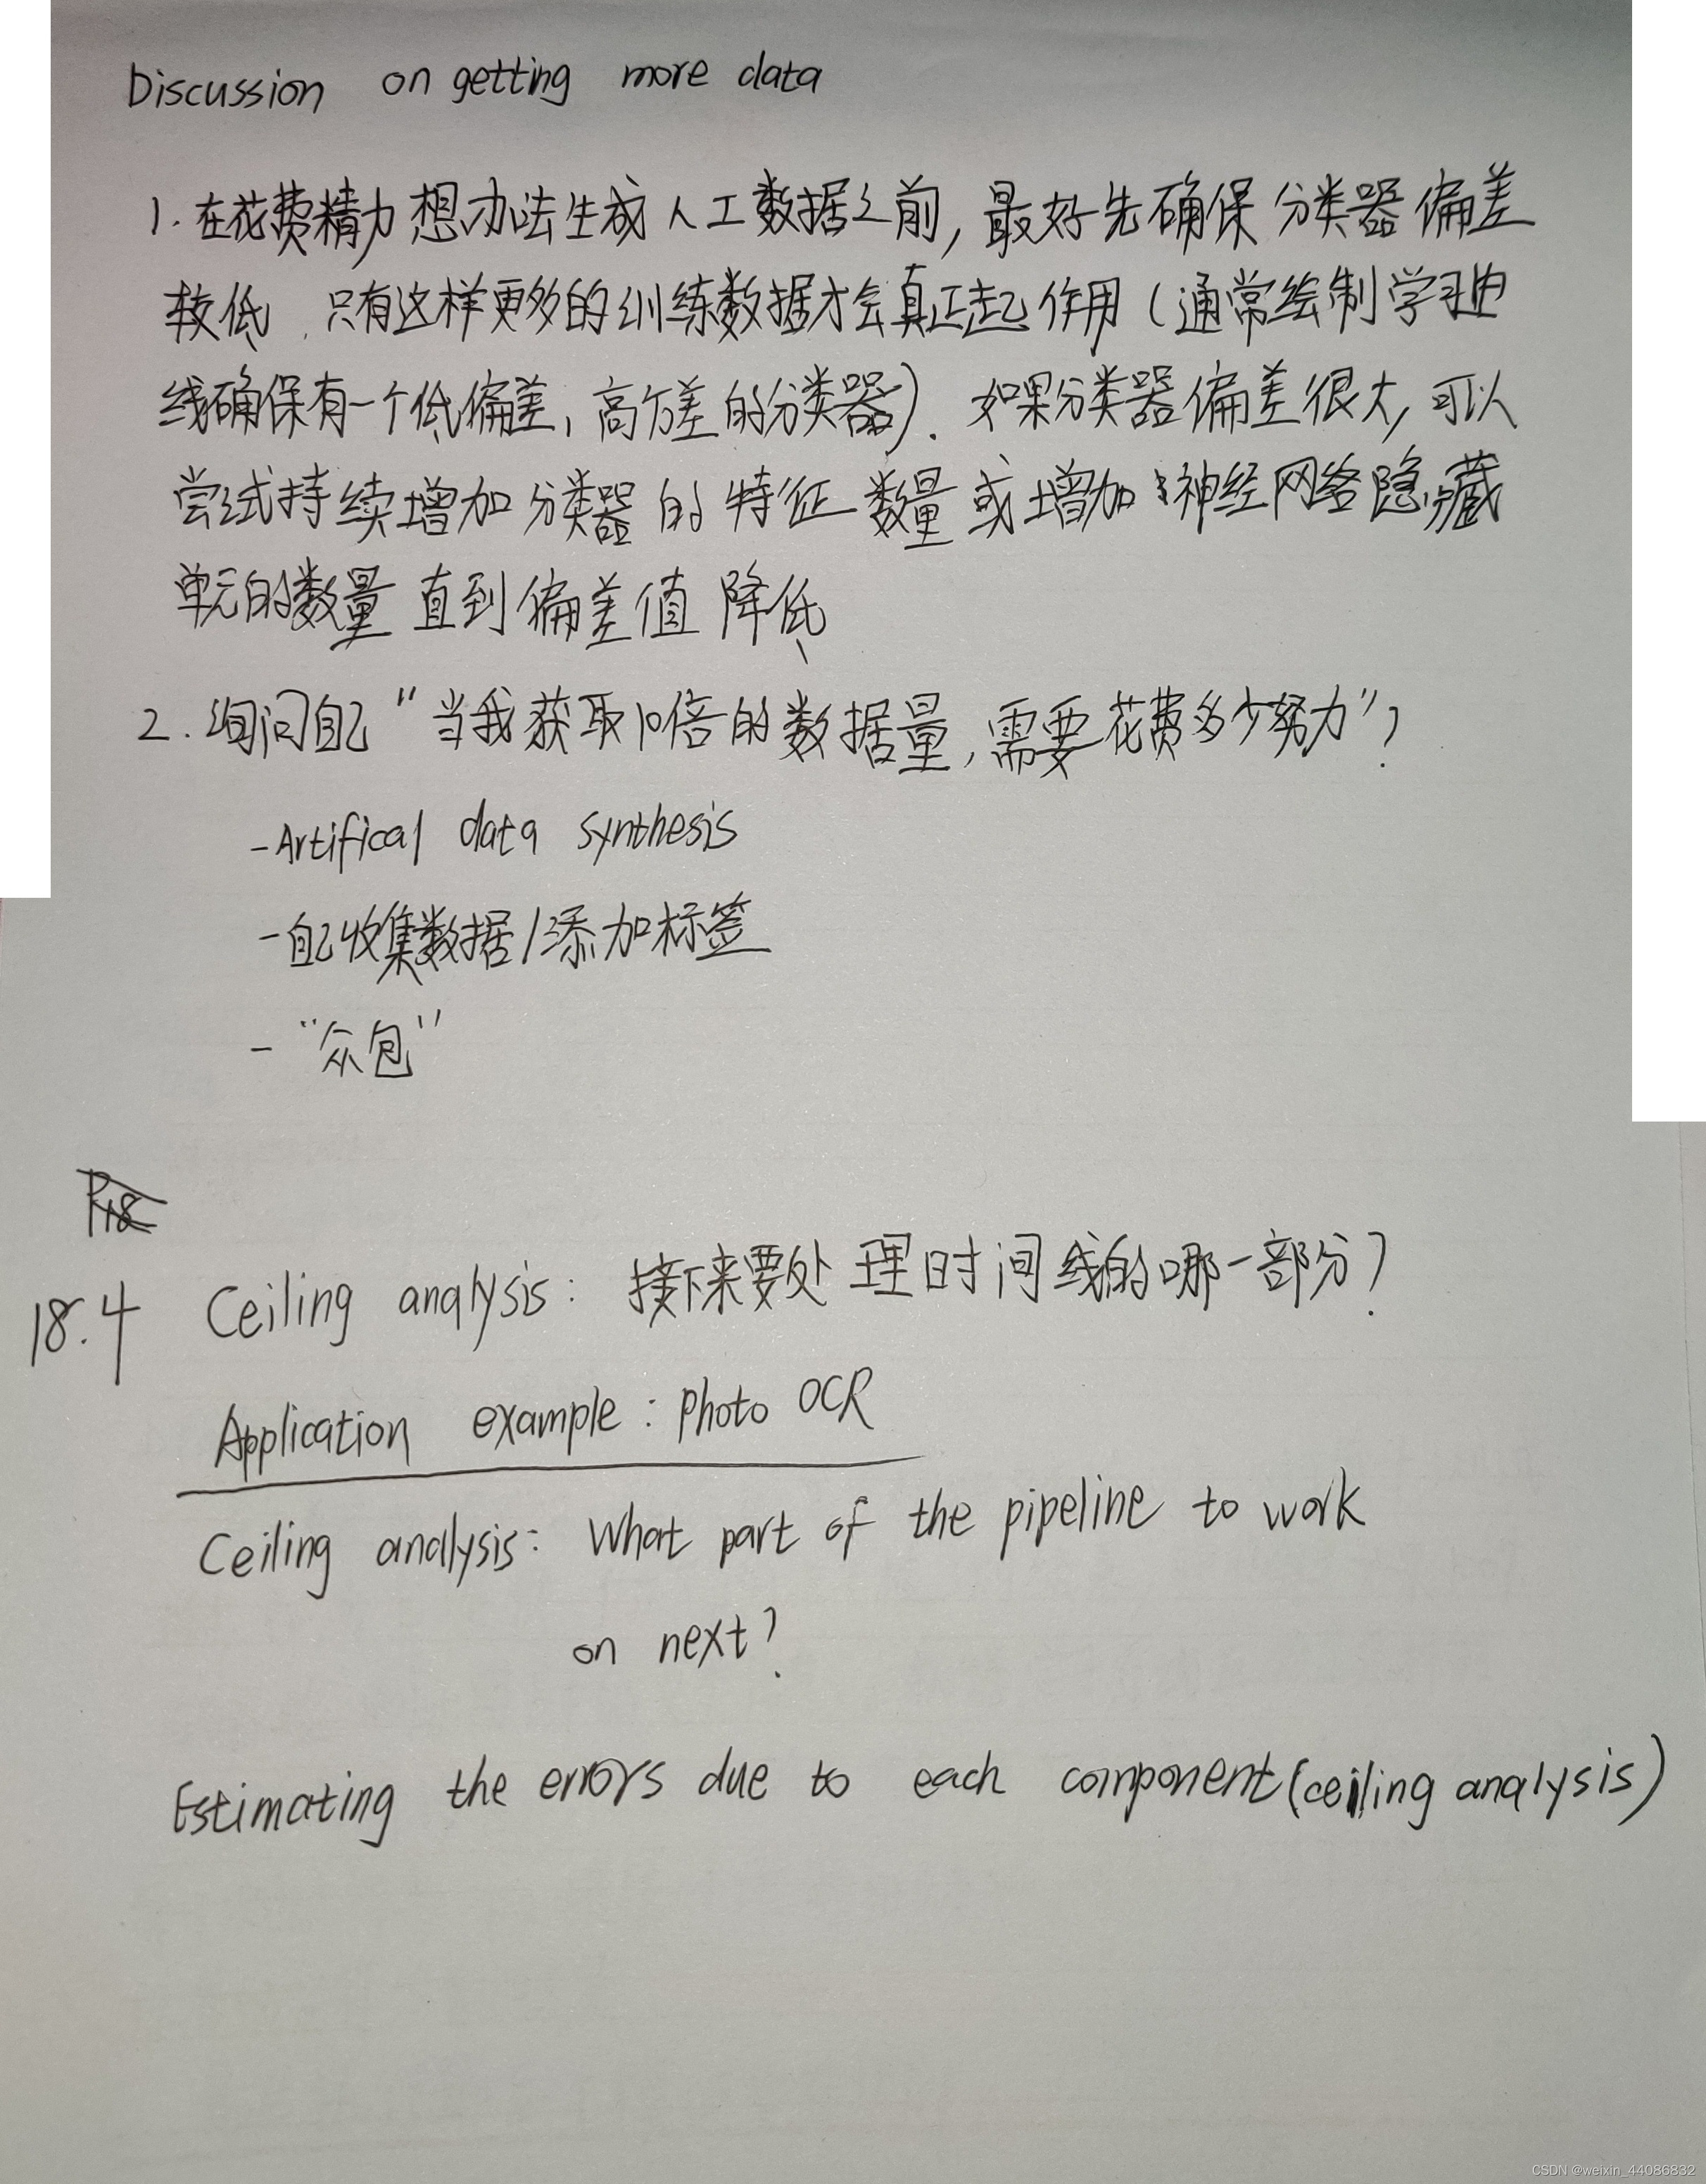 Discussion on getting more data
1. 在花费精力想办法生成人工数据之前, 最好先确保分类器偏差
较低, 只有这样更多的训练数据才会真正起作用 (通常绘制学习曲
线确保有一个低偏差, 高方差的分类器). 如果分类器偏差很大, 可以
尝试持续增加分类器的特征数量或增加神经网络隐藏
单元的数量直到偏差值降低
2. 询问自己 "当我获取10倍的数据量, 需要花费多少努力"?
-Artifical data synthesis
-自己收集数据/添加标签
- "众包"
18.4 Ceiling analysis: 接下来要处理时间线的哪一部分?
Application example: photo OCR
Ceiling analysis: What part of the pipeline to work
on next?
Estimating the errors due to each component (ceiling analysis)
CSDN @weixin_44086832